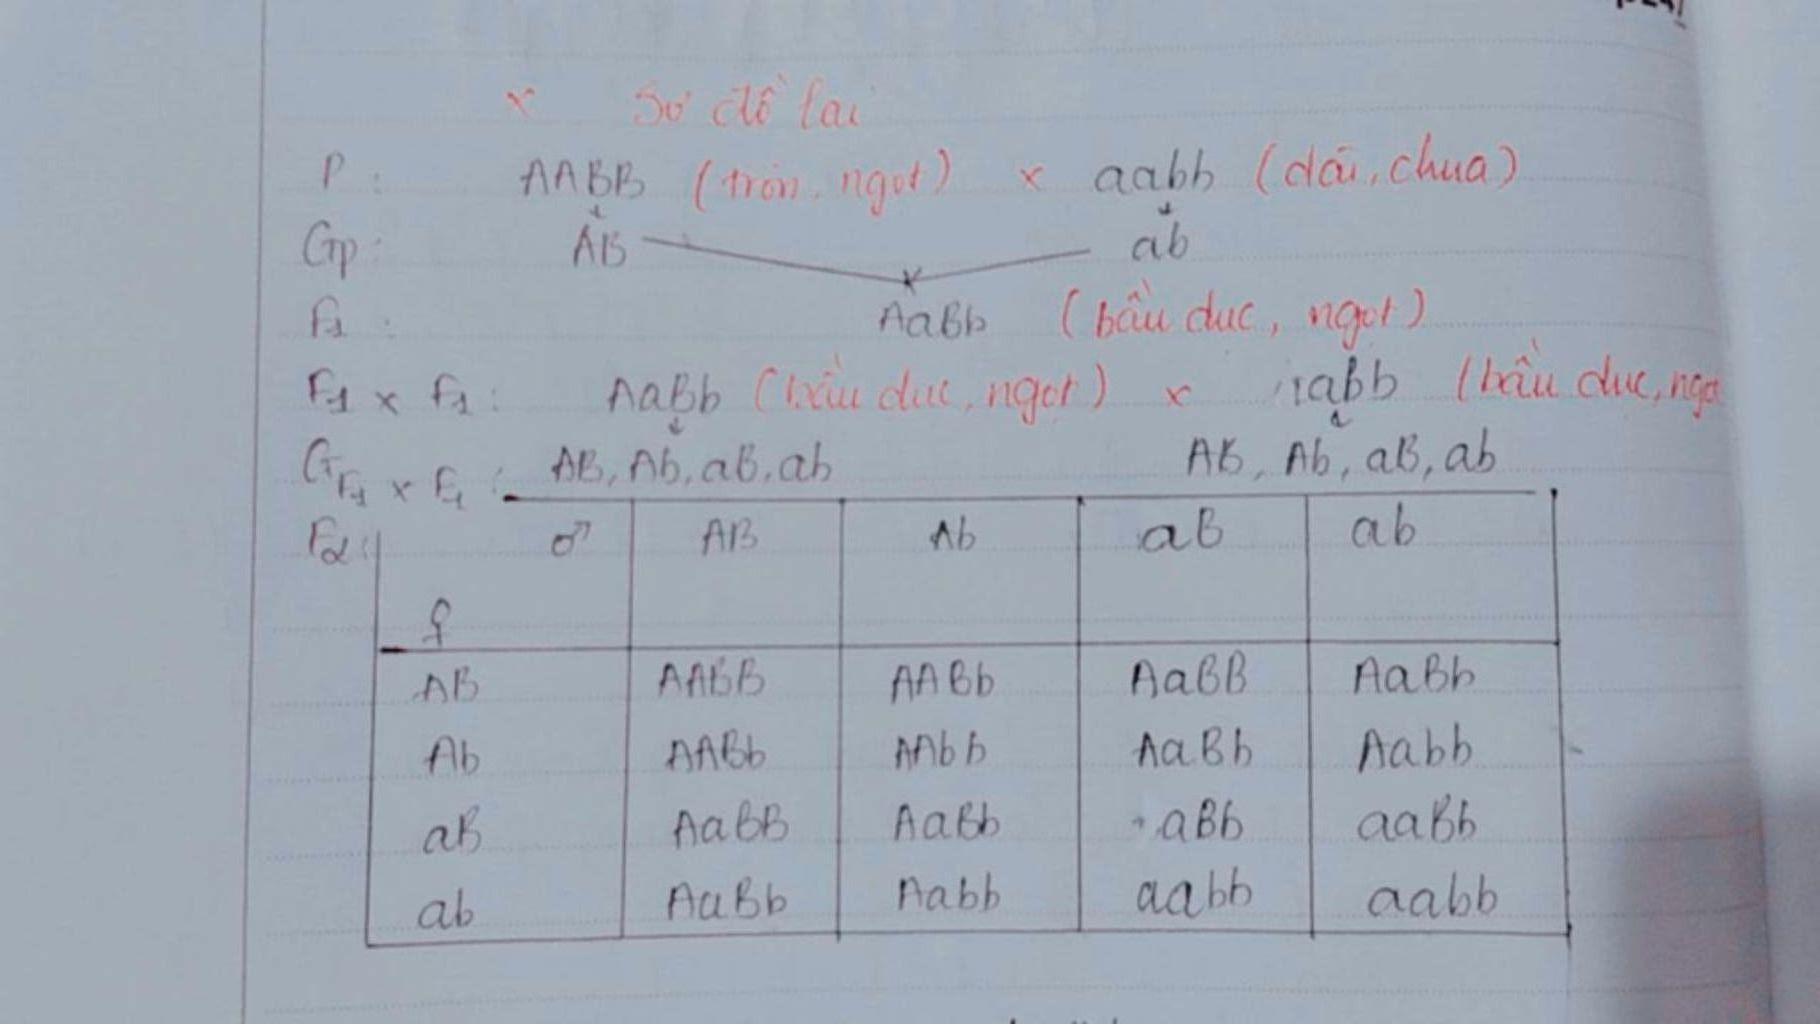 x Sơ đồ lai
P: AABB (tròn, ngọt) x aabb (dài, chua)
Gp: AB ab
F1: AaBb (bầu dục, ngọt)
F1 x F1: AaBb (bầu dục, ngọt) x aBb (bầu dục, ngọ
GF1 x F1: AB, Ab, aB, ab AB, Ab, aB, ab
F2: ♂ AB Ab aB ab
♀
AB AABB AABb AaBB AaBb
Ab AABb AAbb AaBb Aabb
aB AaBB AaBb aBb aaBb
ab AaBb Aabb aabb aabb